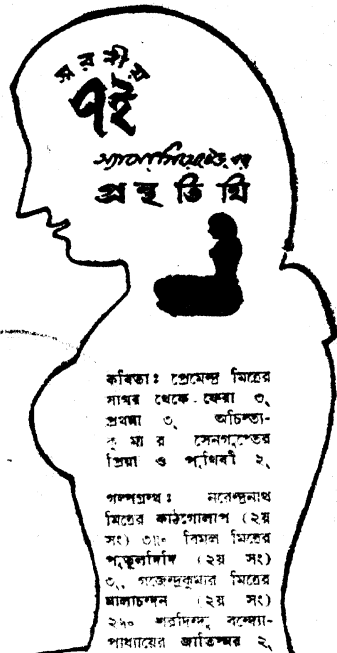 স্মরণীয়
৭ই
অ্যাসোসিয়েটেড-এর
গ্রন্থতিথি
কবিতা : প্রেমেন্দ্র মিত্রের
সাগর থেকে ফেরা ৩৲
প্রথমা ৩৲ অচিন্ত্য-
কুমার সেনগুপ্তের
প্রিয়া ও পৃথিবী ২৲
গল্পগ্রন্থ : নরেন্দ্রনাথ
মিত্রের কাঠগোলাপ (২য়
সং) ৩॥০ বিমল মিত্রের
পুতুলদিদি (২য় সং)
৩৲, গজেন্দ্রকুমার মিত্রের
মালাচন্দন (২য় সং)
২৸০ শরদিন্দু বন্দ্যো-
পাধ্যায়ের জাতিস্মর ২৲